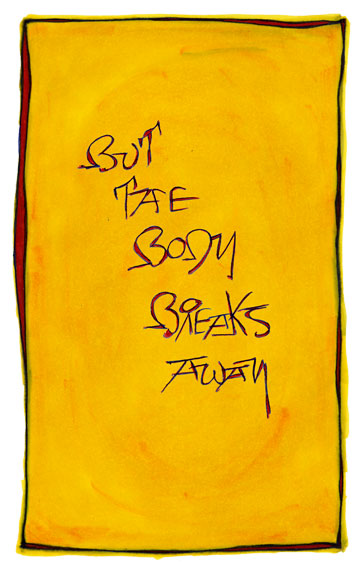 BUT
THE
BODY
BREAKS
AWAY